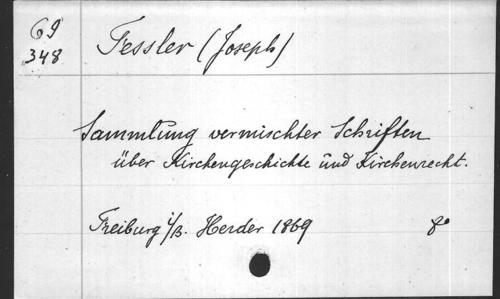 69
348
Fessler (Joseph)
Sammlung vermischter Schriften
über Kirchengeschichte und Kirchenrecht.
Freiburg i/B. Herder 1869 8°